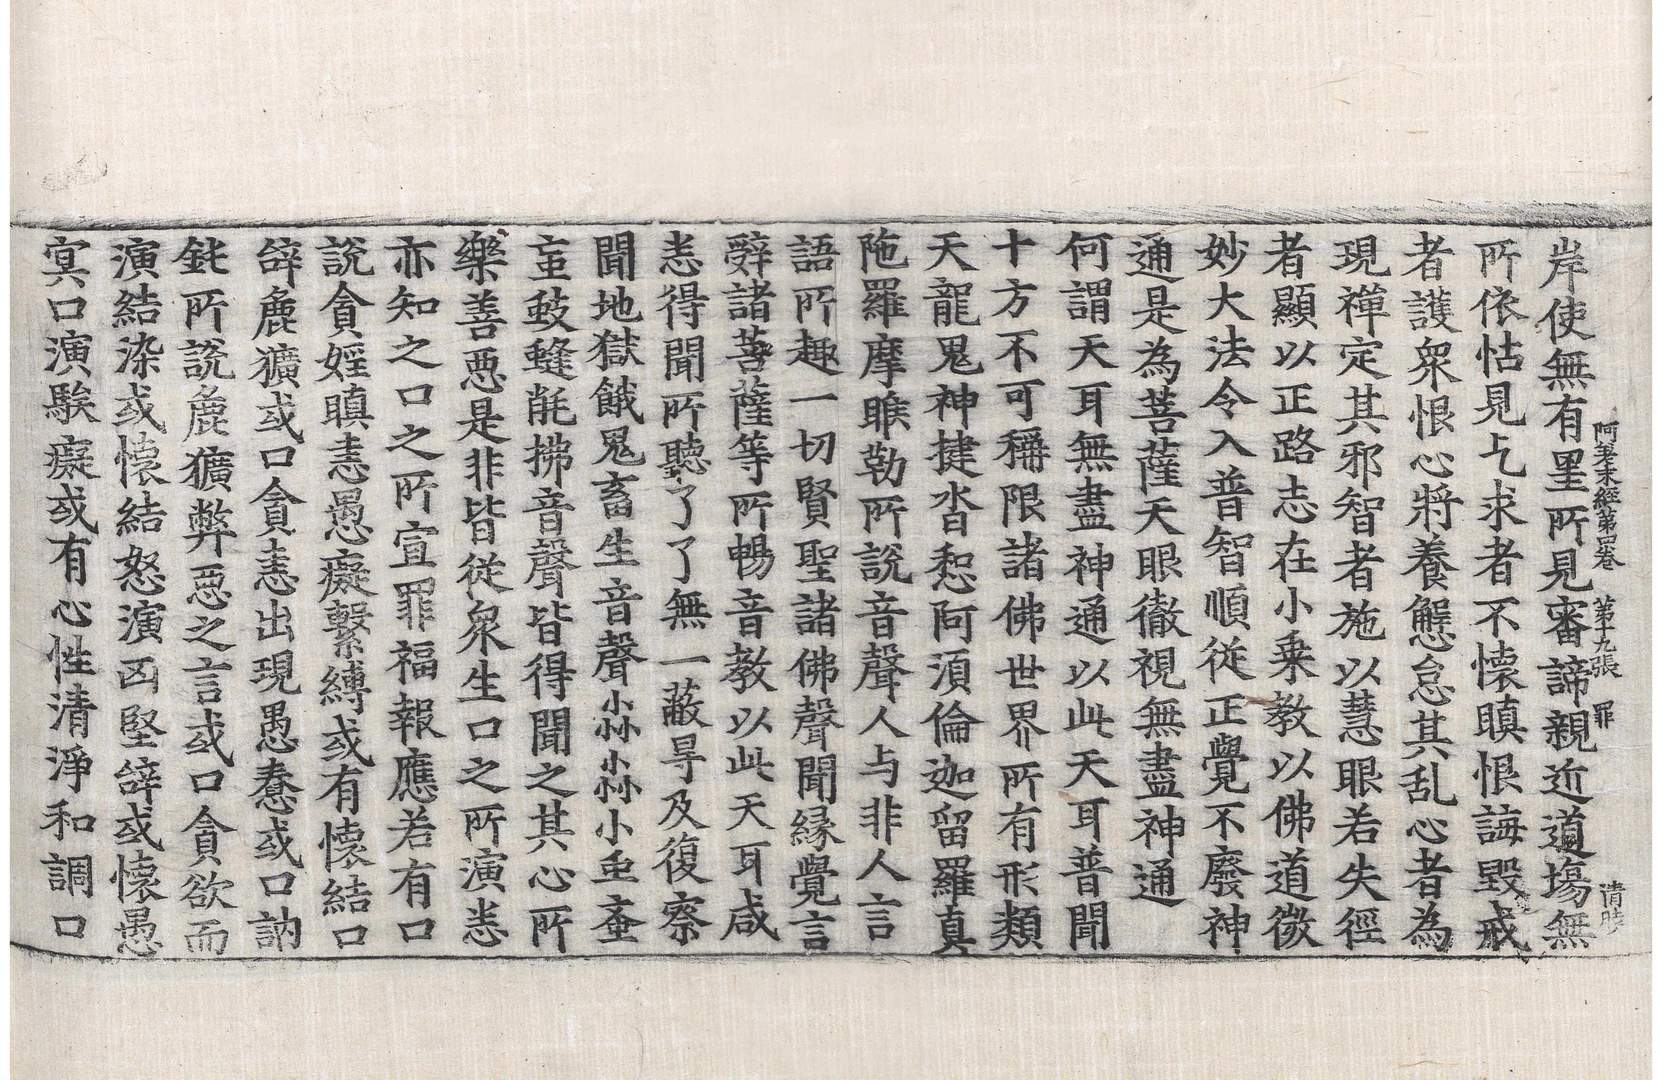 阿差末經第四卷　第十九張　罪　清晓
岸使無有罣所見審諦親近道場無
所依怙見乞求者不懷瞋恨誨毀戒
者護眾恨心將養懈怠其乱心者為
現禪定其邪智者施以慧眼若失徑
者顯以正路志在小乗教以佛道微
妙大法令入普智順従正覺不廢神
通是為菩薩天眼徹視無盡神通
何謂天耳無盡神通以此天耳普聞
十方不可稱限諸佛世界所有形類
天龍鬼神揵沓惒阿須倫迦留羅真
陁羅摩睺勒所說音聲人与非人言
語所趣一切賢聖諸佛聲聞緣覺言
辤諸菩薩等所暢音教以此天耳咸
悉得聞所聽了了無一蔽㝵及復察
聞地獄餓鬼畜生音聲小小小小小虫蚕
蝱蚊蜂毦拂音聲皆得聞之其心所
樂善惡是非皆従眾生口之所演悉
亦知之口之所宣罪福報應若有口
說貪婬瞋恚愚癡繫縛或有懷結口
辝麁獷或口貪恚出現愚惷或口訥
鈍所說麁獷弊惡之言或口貪欲而
演結染或懷結怒演凶堅辝或懷愚
㝠口演騃癡或有心性清淨和調口